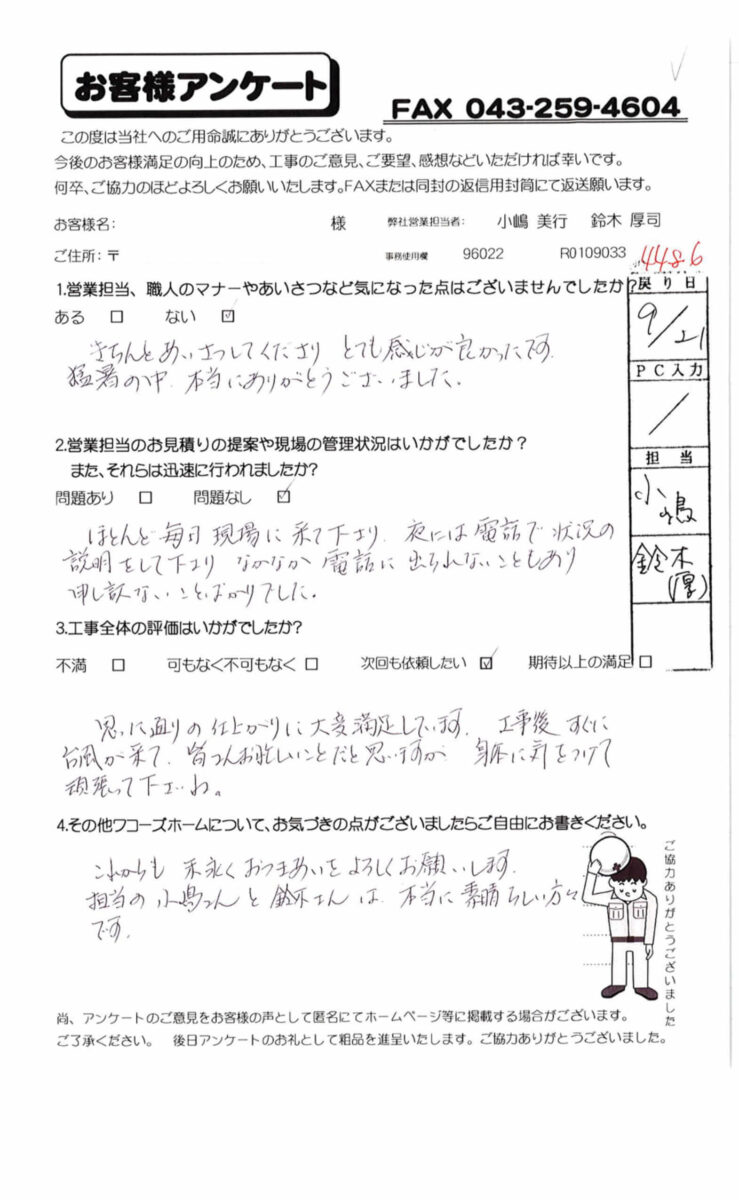 お客様アンケート
FAX 043-259-4604
この度は当社へのご用命誠にありがとうございます。
今後のお客様満足の向上のため、工事のご意見、ご要望、感想などいただければ幸いです。
何卒、ご協力のほどよろしくお願いいたします。FAXまたは同封の返信用封筒にて返送願います。
お客様名: 様 弊社営業担当者: 小嶋 美行 鈴木 厚司
ご住所:〒 事務使用欄 96022 R0109033 4486
1.営業担当、職人のマナーやあいさつなど気になった点はございませんでしたか?
ある □ ない ☑
きちんとあいさつしてくださり とても感じが良かったです。
猛暑の中、本当にありがとうございました。
戻り日
9/21
PC入力
/
担当
小嶋
鈴木
(厚)
2.営業担当のお見積りの提案や現場の管理状況はいかがでしたか?
また、それらは迅速に行われましたか?
問題あり □ 問題なし ☑
ほとんど毎日現場に来て下さり、夜には電話で状況の
説明をして下さり なかなか電話に出られないこともあり
申し訳ないことばかりでした。
3.工事全体の評価はいかがでしたか?
不満 □ 可もなく不可もなく □ 次回も依頼したい ☑ 期待以上の満足 □
思った通りの仕上がりに大変満足しています。工事後すぐに
台風が来て、皆さんお忙しいことだと思いますが 身体に気をつけて
頑張って下さいね。
4.その他ワコーズホームについて、お気づきの点がございましたらご自由にお書きください。
これからも 末永くおつきあいをよろしくお願いします。
担当の小嶋さんと鈴木さんは、本当に素晴らしい方々
です。
ご協力ありがとうございました
尚、アンケートのご意見をお客様の声として匿名にてホームページ等に掲載する場合がございます。
ご了承ください。 後日アンケートのお礼として粗品を進呈いたします。ご協力ありがとうございました。